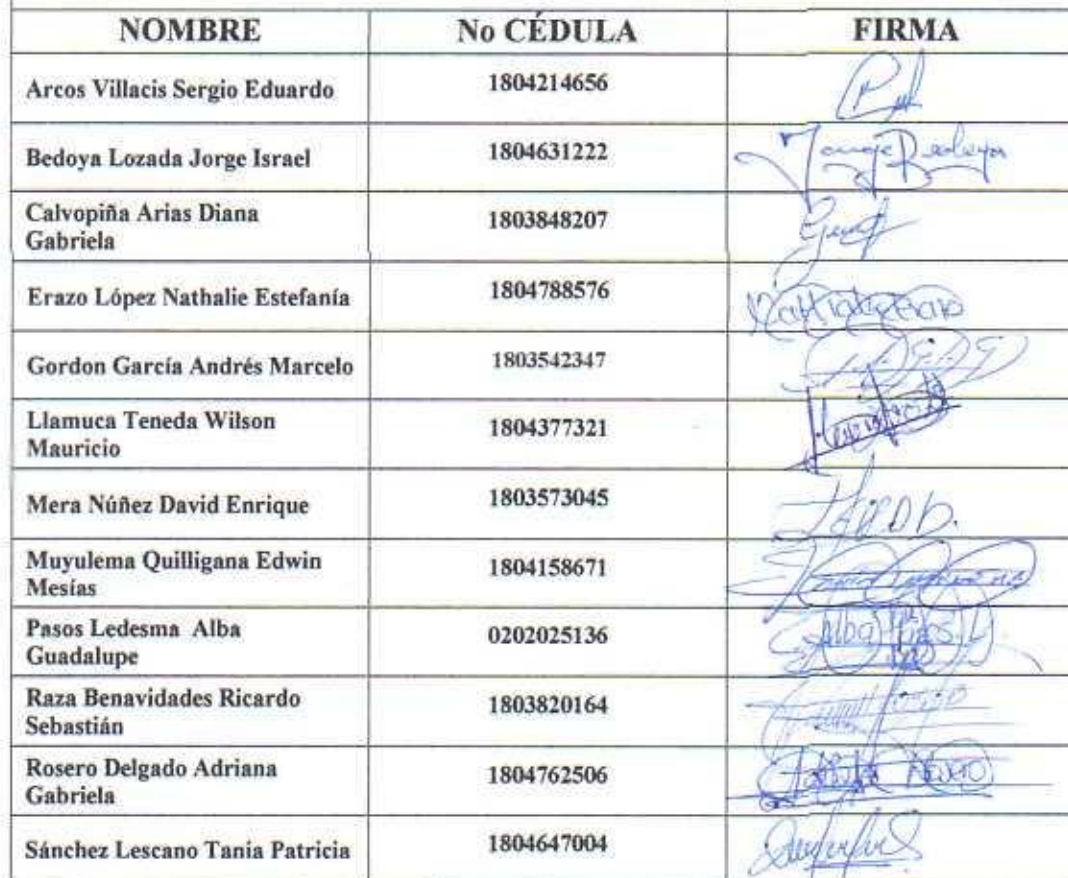 NOMBRE No CÉDULA FIRMA
Arcos Villacis Sergio Eduardo 1804214656
Bedoya Lozada Jorge Israel 1804631222 Jorge Bedoya
Calvopiña Arias Diana 1803848207
Gabriela
Erazo López Nathalie Estefanía 1804788576
Gordon García Andrés Marcelo 1803542347
Llamuca Teneda Wilson 1804377321
Mauricio
Mera Núñez David Enrique 1803573045
Muyulema Quilligana Edwin 1804158671
Mesías
Pasos Ledesma Alba 0202025136 Alba
Guadalupe
Raza Benavidades Ricardo 1803820164
Sebastián
Rosero Delgado Adriana 1804762506
Gabriela
Sánchez Lescano Tania Patricia 1804647004